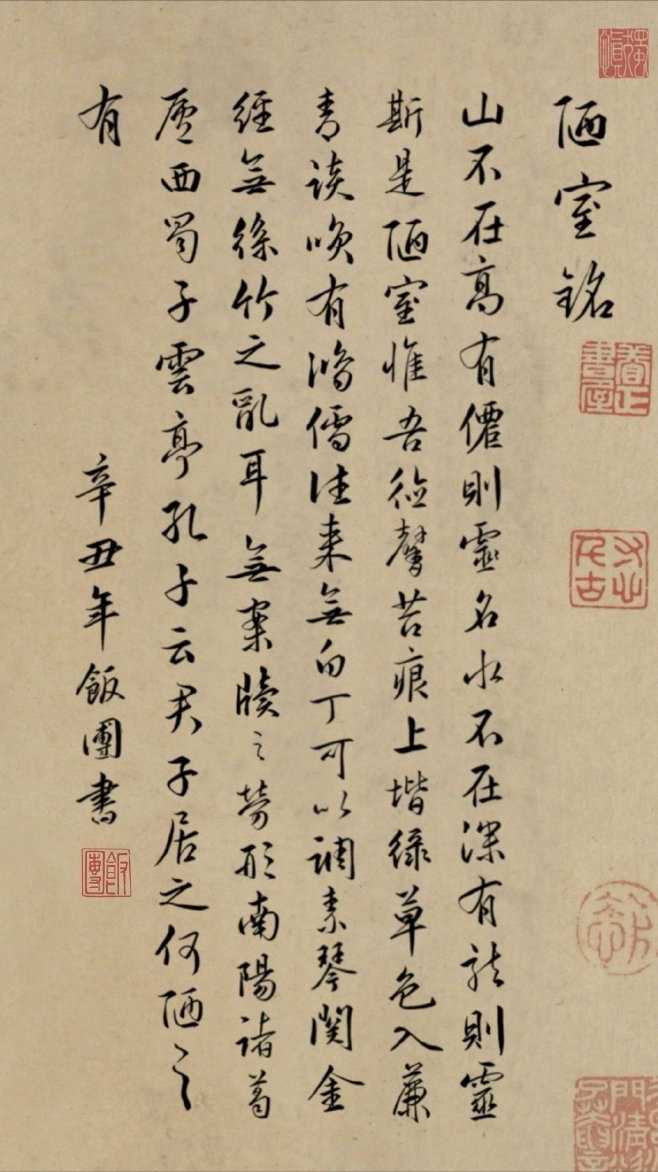 陋室銘
山不在高有僊則靈名水不在深有龍則靈
斯是陋室惟吾德馨苔痕上堦綠草色入簾
青談咲有鴻儒往來無白丁可以調素琴閱金
經無絲竹之亂耳無案牘之勞形南陽諸葛
廬西蜀子雲亭孔子云君子居之何陋之
有
辛丑年飯團書
飯團